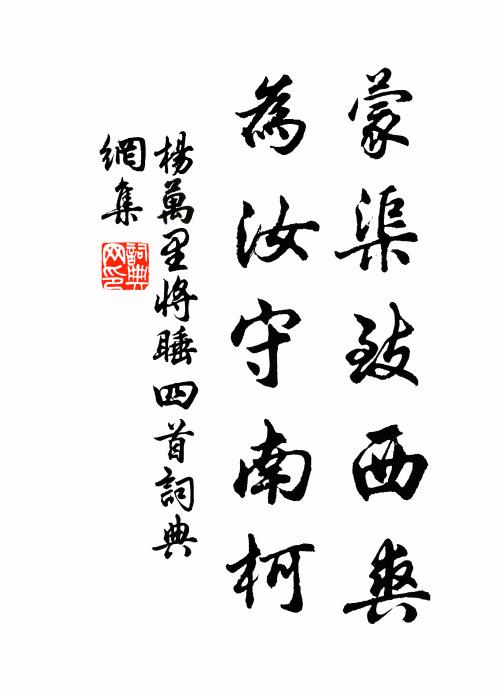 蒙渠致西爽
為汝守南柯
楊萬里將睡四首詞典
網集
詞典網印